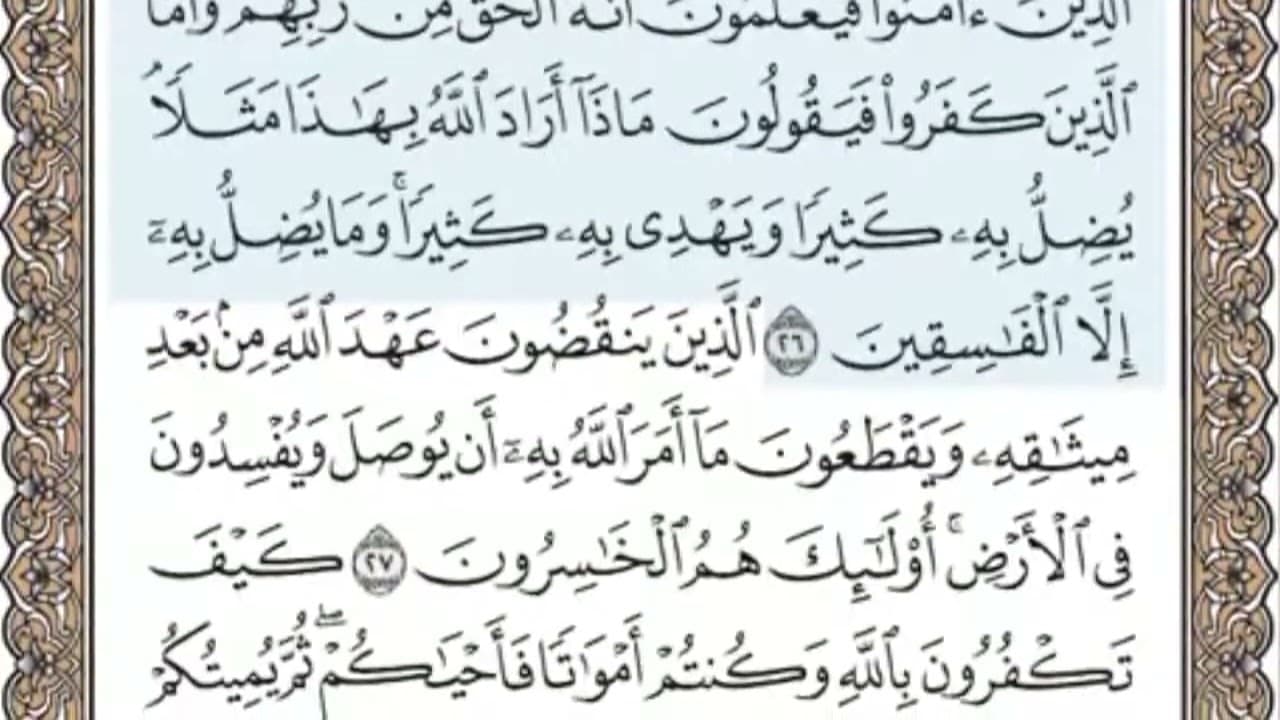 ٱلَّذِينَ ءَامَنُوا۟ فَيَعْلَمُونَ أَنَّهُ ٱلْحَقُّ مِن رَّبِّهِمْ وَأَمَّا
ٱلَّذِينَ كَفَرُوا۟ فَيَقُولُونَ مَاذَآ أَرَادَ ٱللَّهُ بِهَـٰذَا مَثَلًۭا
يُضِلُّ بِهِۦ كَثِيرًۭا وَيَهْدِى بِهِۦ كَثِيرًۭا ۚ وَمَا يُضِلُّ بِهِۦٓ
إِلَّا ٱلْفَـٰسِقِينَ ٢٦ ٱلَّذِينَ يَنقُضُونَ عَهْدَ ٱللَّهِ مِنۢ بَعْدِ
مِيثَـٰقِهِۦ وَيَقْطَعُونَ مَآ أَمَرَ ٱللَّهُ بِهِۦٓ أَن يُوصَلَ وَيُفْسِدُونَ
فِى ٱلْأَرْضِ ۚ أُو۟لَـٰٓئِكَ هُمُ ٱلْخَـٰسِرُونَ ٢٧ كَيْفَ
تَكْفُرُونَ بِٱللَّهِ وَكُنتُمْ أَمْوَٰتًۭا فَأَحْيَـٰكُمْ ۖ ثُمَّ يُمِيتُكُمْ